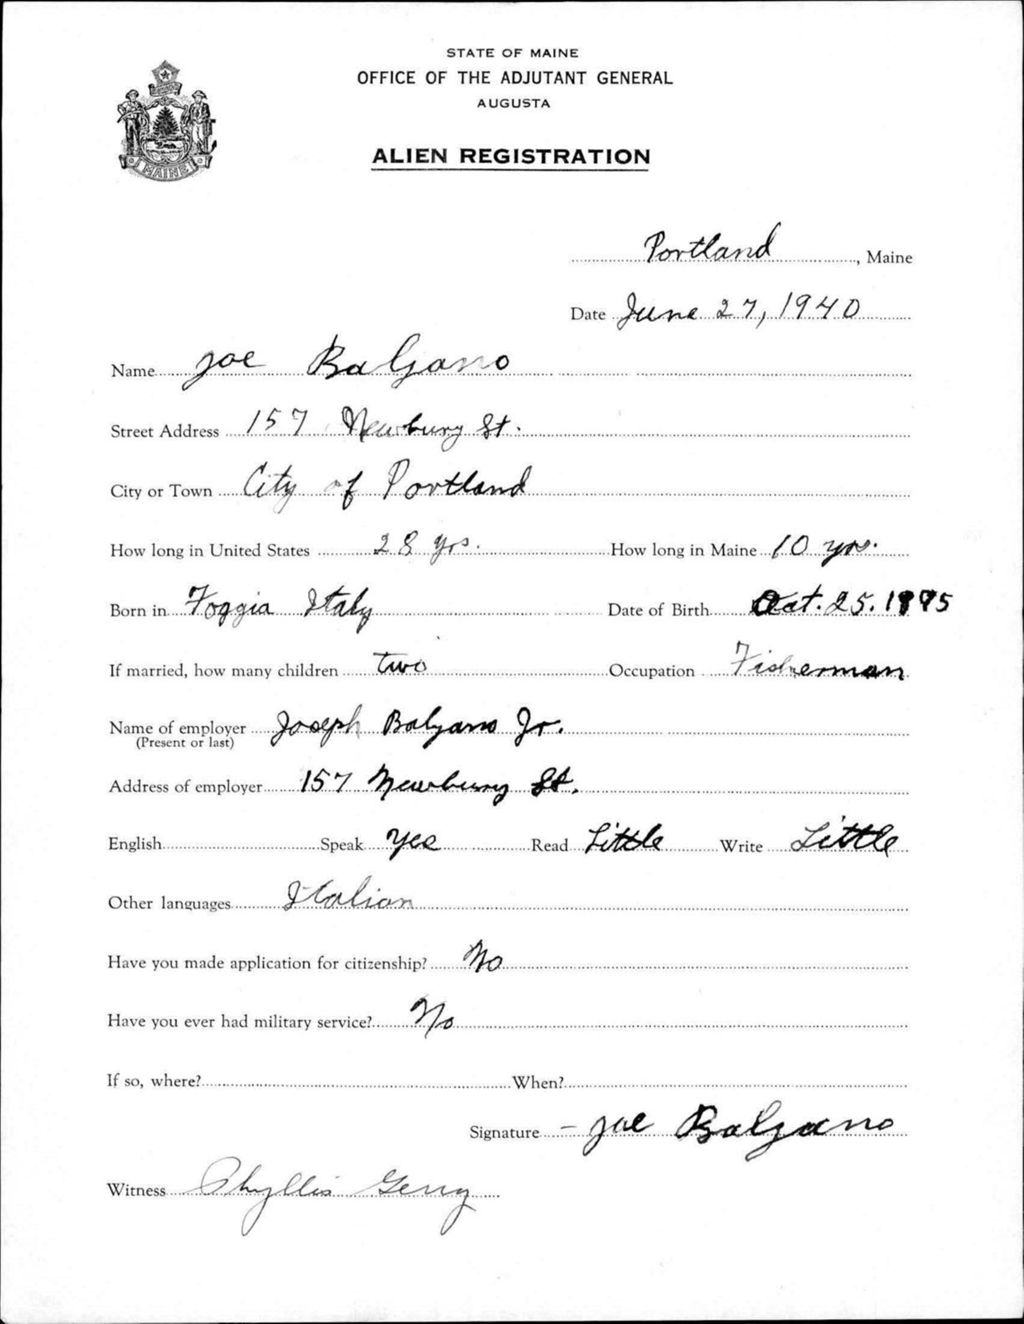 STATE OF MAINE
OFFICE OF THE ADJUTANT GENERAL
AUGUSTA
ALIEN REGISTRATION
MAINE
Portland, Maine
Date June 27, 1940
Name Joe Balgano
Street Address 157 Newbury St.
City or Town City of Portland
How long in United States 28 yrs. How long in Maine 10 yrs.
Born in Foggia Italy Date of Birth Oct. 25.
If married, how many children two Occupation Fisherman
Name of employer Joseph Balgano Jr.
(Present or last)
Address of employer 157 Newbury St.
English Speak Yes Read Little Write Little
Other languages Italian
Have you made application for citizenship? No
Have you ever had military service? No
If so, where? When?
Signature - Joe Balgano
Witness Phyllis Gerry